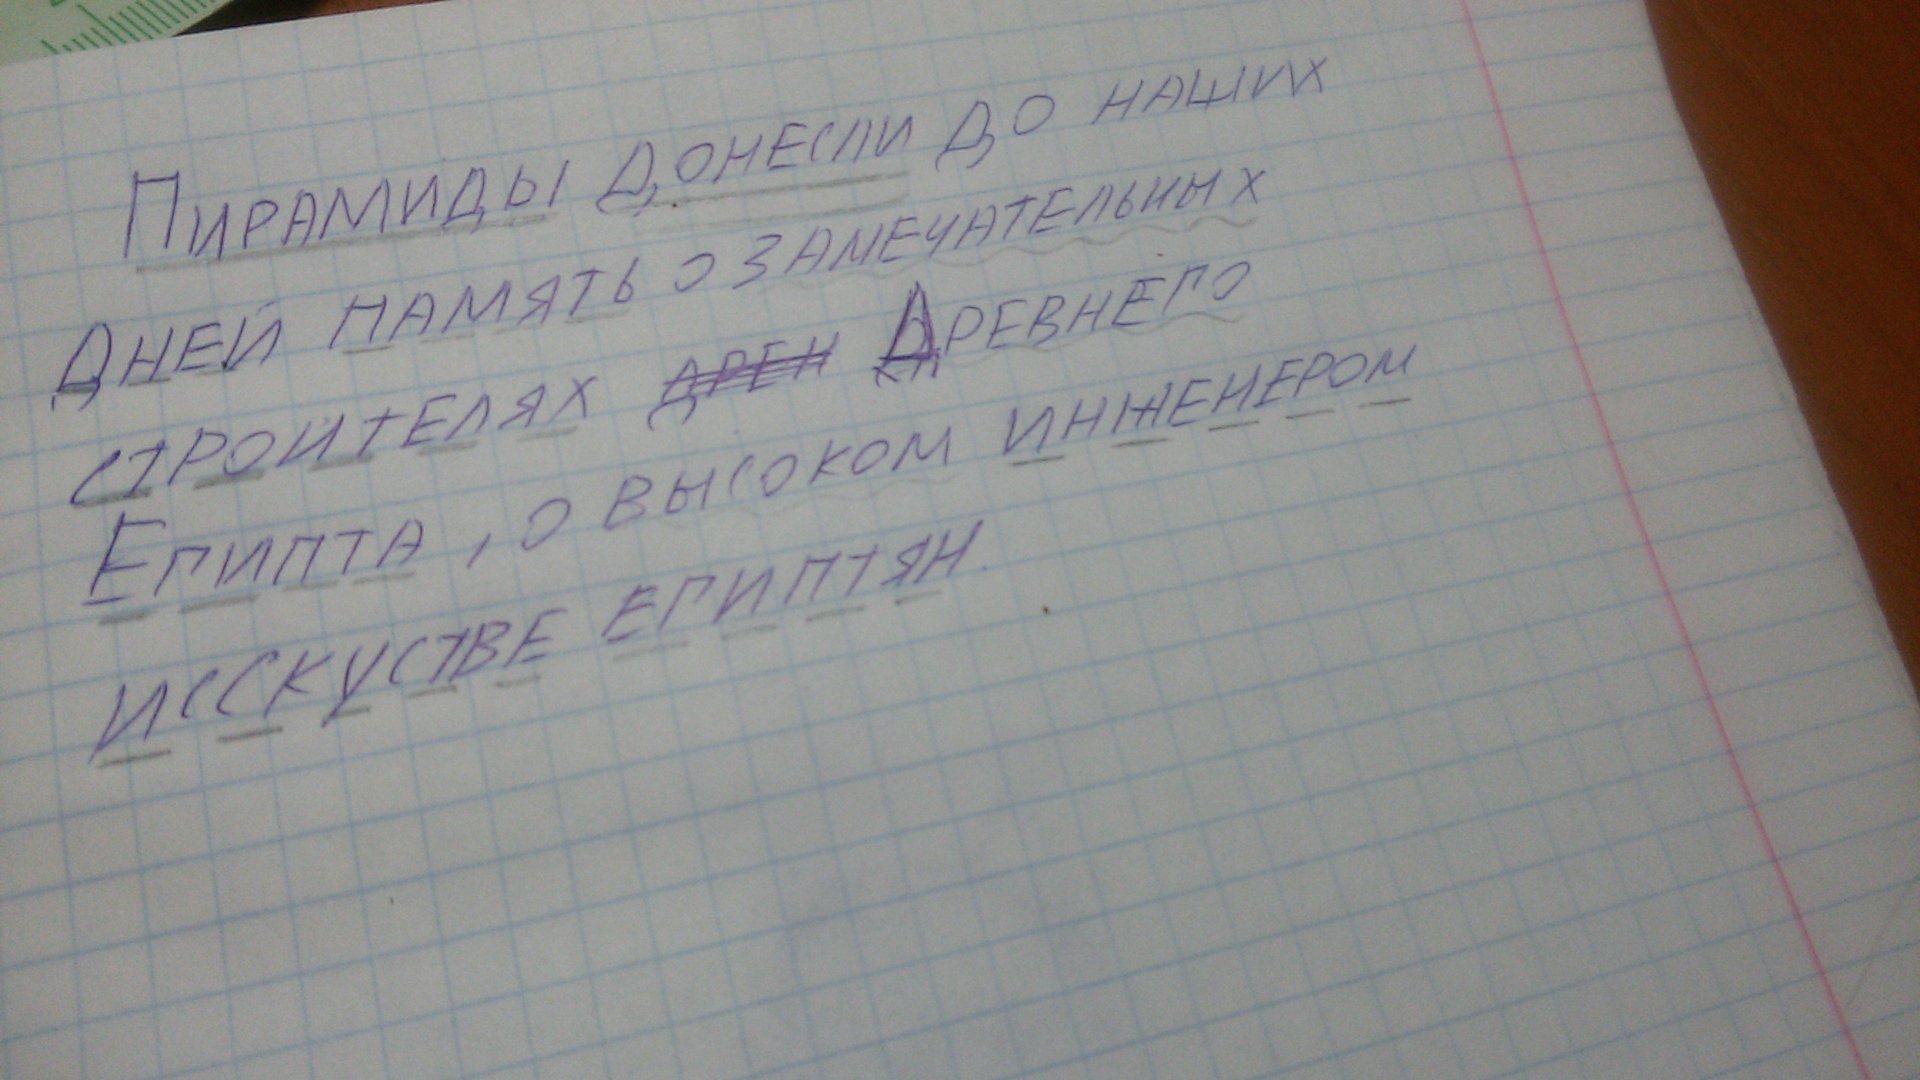 Пирамиды донесли до наших
дней память о замечательных
строителях дрен Древнего
Египта, о высоком инженером
исскустве египтян.